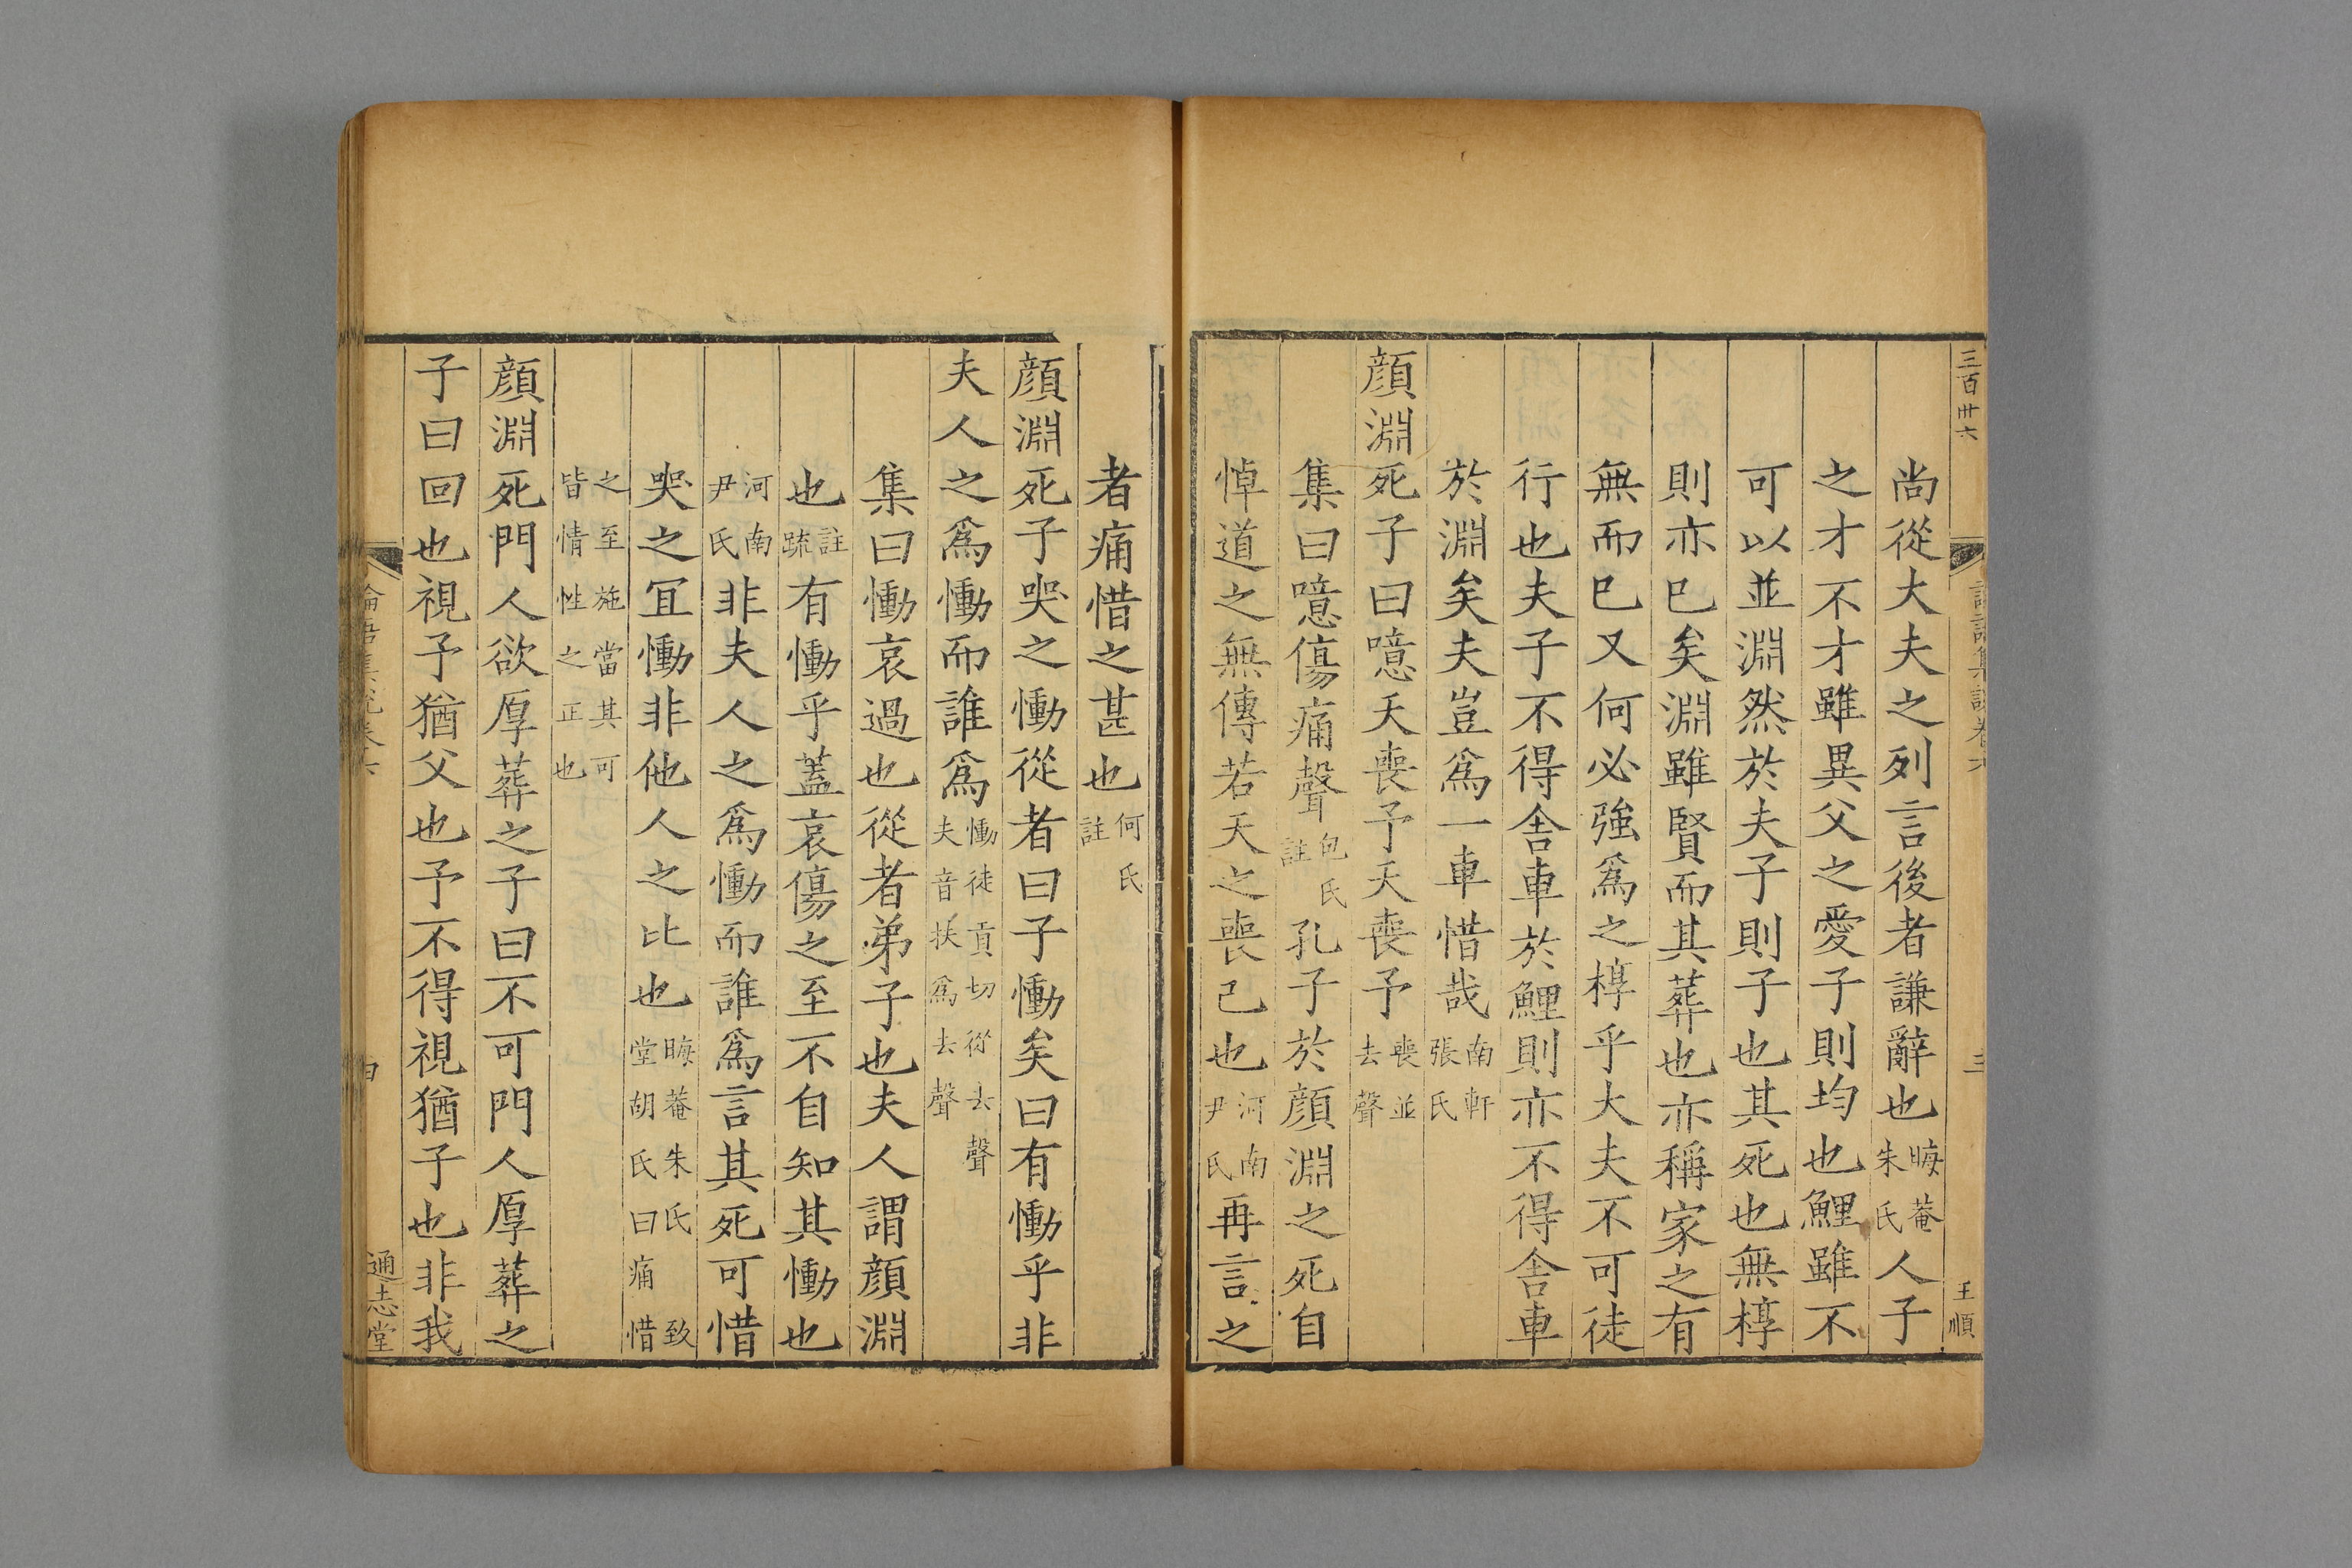 三百卅六
王順
三
尚從大夫之列言後者謙辭也晦菴朱氏人子
之才不才雖異父之愛子則均也鯉雖不
可以並淵然於夫子則子也其死也無椁
則亦已矣淵雖賢而其葬也亦稱家之有
無而已又何必強爲之椁乎大夫不可徒
行也夫子不得舍車於鯉則亦不得舍車
於淵矣夫豈爲一車惜哉南軒張氏
顔淵死子曰噫天喪予天喪予喪並去聲
集曰噫傷痛聲包氏註孔子於顔淵之死自
悼道之無傳若天之喪己也河南尹氏再言之
者痛惜之甚也何氏註
顔淵死子哭之慟從者曰子慟矣曰有慟乎非
夫人之爲慟而誰爲慟徒貢切從去聲夫音扶爲去聲
集曰慟哀過也從者弟子也夫人謂顔淵
也註疏有慟乎蓋哀傷之至不自知其慟也
河南尹氏非夫人之爲慟而誰爲言其死可惜
哭之宜慟非他人之比也晦菴朱氏致堂胡氏曰痛惜
之至施當其可皆情性之正也
顔淵死門人欲厚葬之子曰不可門人厚葬之
子曰回也視予猶父也予不得視猶子也非我
論語集說卷六
通志堂